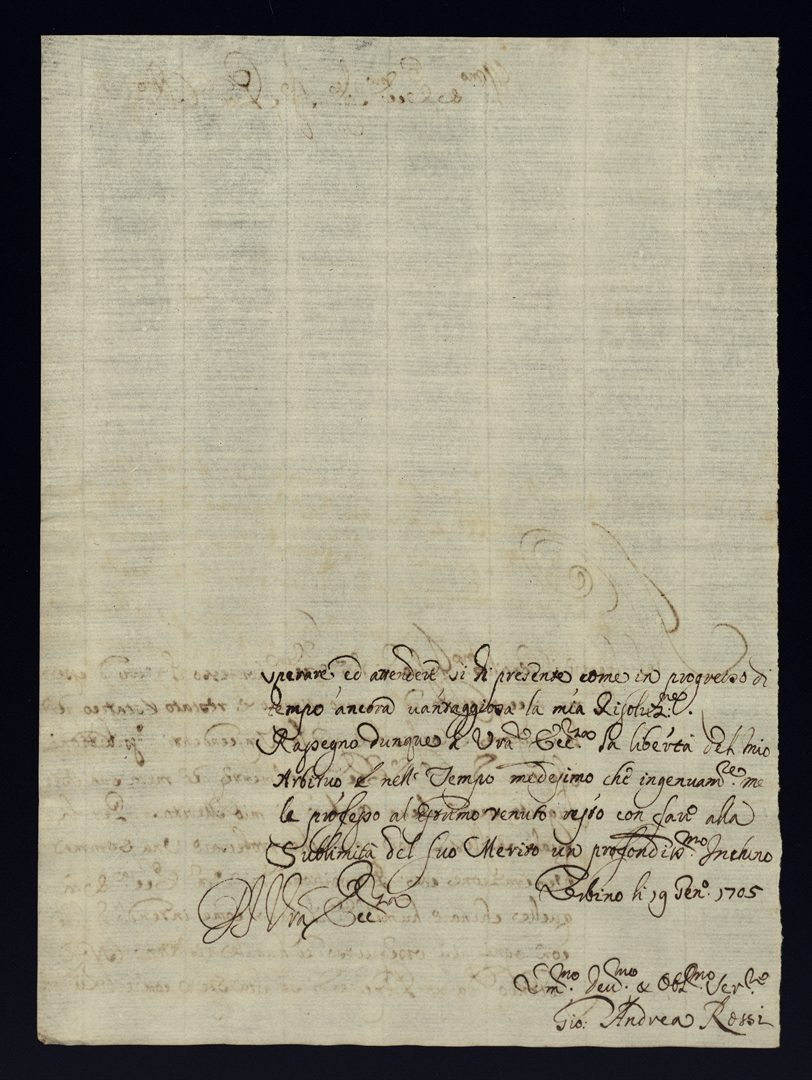 sperare ed attendere sì di presente come in progresso di
tempo ancora vantaggiosa la mia Risoluz.ne
Rassegno dunque a Vra Ecc.za la libertà del mio
Arbitrio e nell Tempo medesimo che ingenuam.te me
le professo al primo venuto resto con fare alla
Sublimità del suo Merito un profondiss.mo Inchino
Urbino li 19 Gen.o 1705
D V.ra Ecc.za
Um.mo Dev.mo & Obl.mo Ser.re
Gio: Andrea Rossi